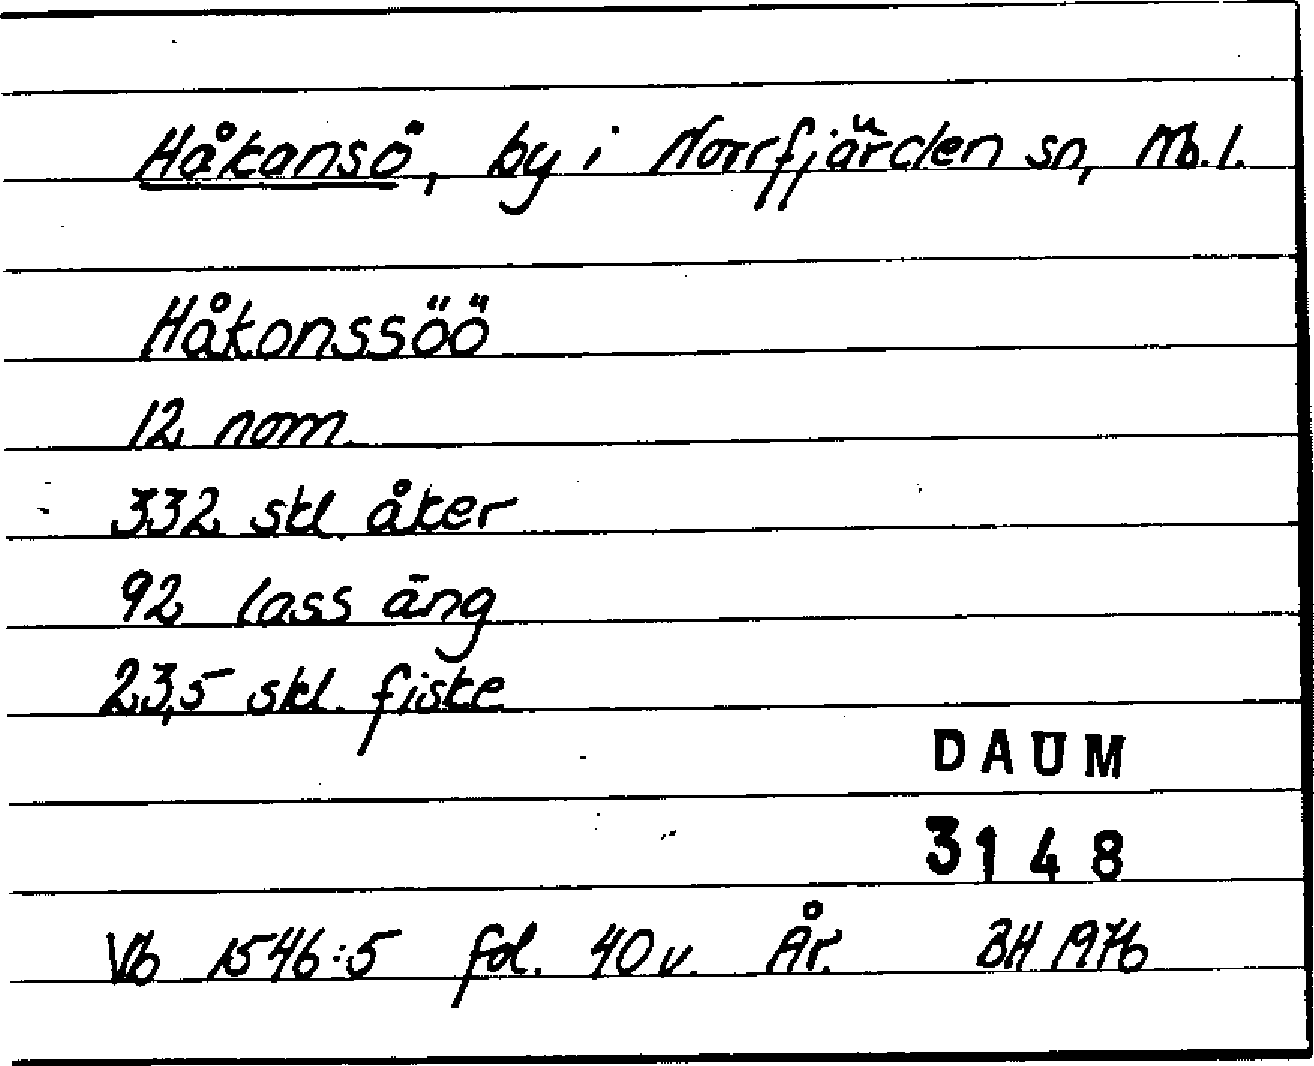 Håkansö, by i Norrfjärden sn, Nb.l.
Håkonssöö
12 nom.
332 skl. åker
92 lass äng
23,5 skl. fiske
DAUM
3148
Vb 1546:5 fol. 40 v. År. BH 1976